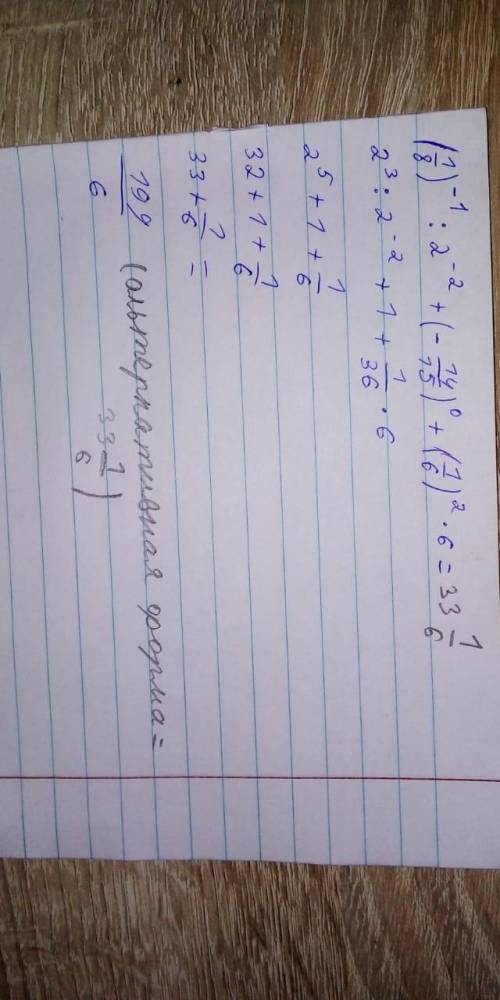 (1/8)^-1 : 2^-2 + (- 14/15)^0 + (1/6)^2 · 6 = 33 1/6
2^3 : 2^-2 + 1 + 1/36 · 6
2^5 + 1 + 1/6
32 + 1 + 1/6
33 + 1/6 =
199/6 (альтернативная форма =
33 1/6)